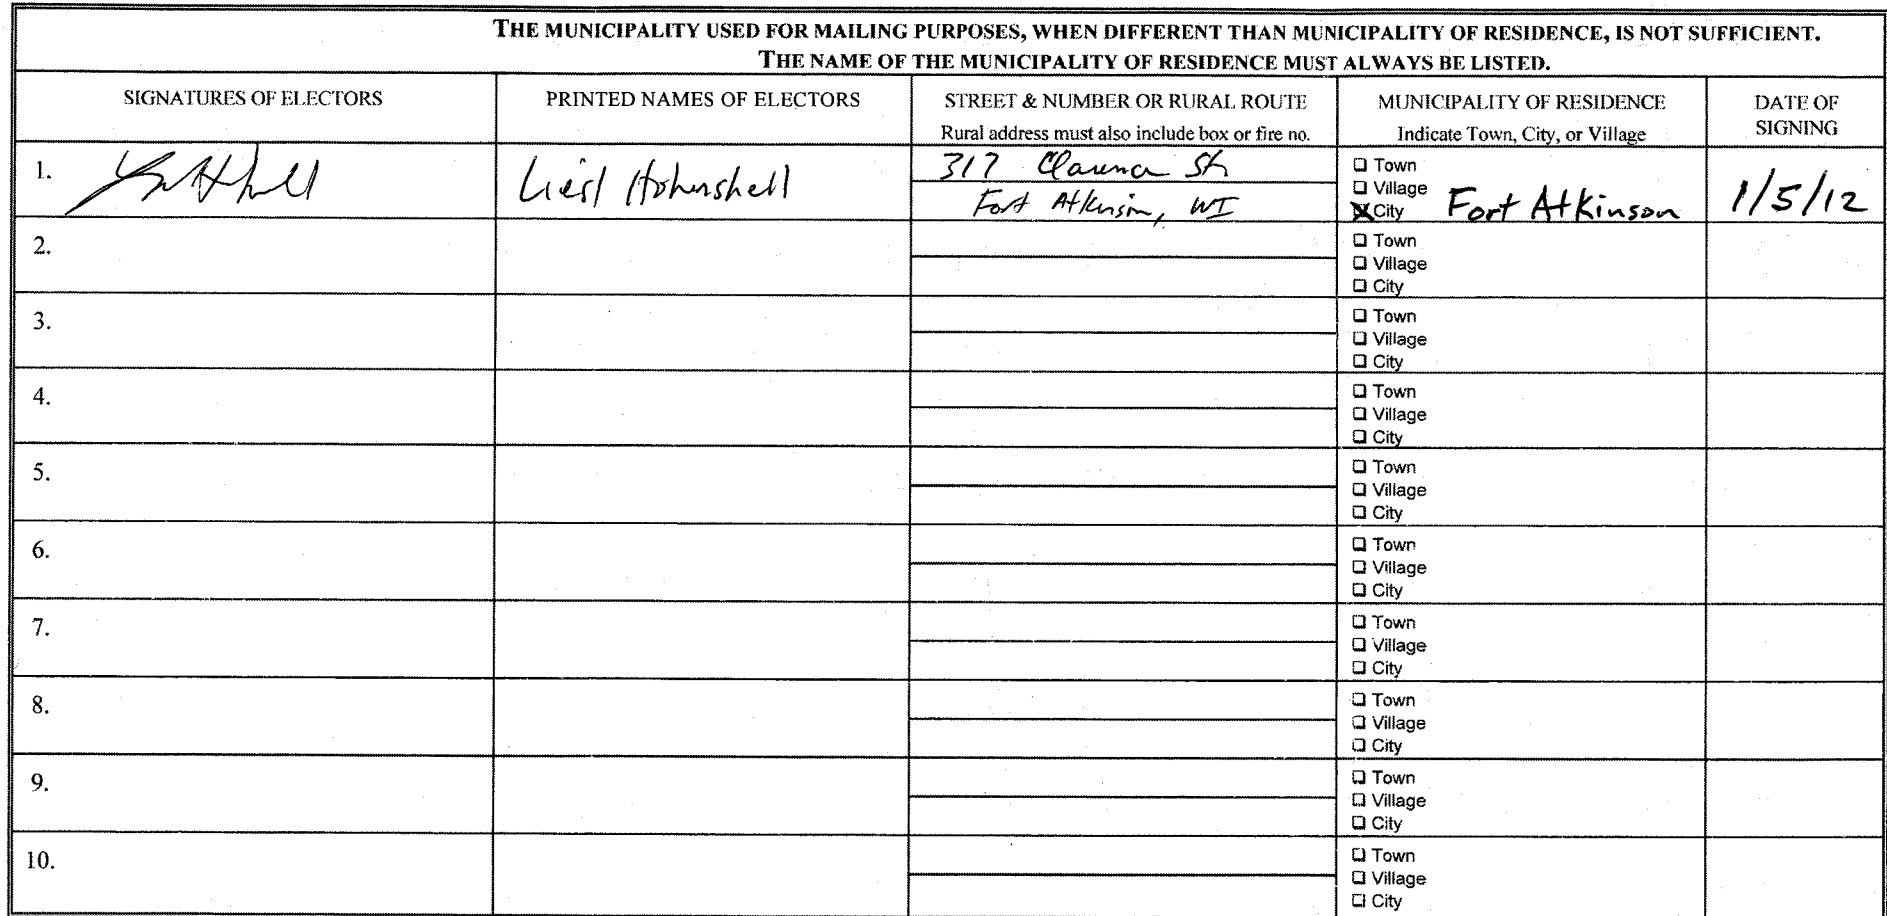 THE MUNICIPALITY USED FOR MAILING PURPOSES, WHEN DIFFERENT THAN MUNICIPALITY OF RESIDENCE, IS NOT SUFFICIENT.
THE NAME OF THE MUNICIPALITY OF RESIDENCE MUST ALWAYS BE LISTED.
SIGNATURES OF ELECTORS
PRINTED NAMES OF ELECTORS
STREET & NUMBER OR RURAL ROUTE
Rural address must also include box or fire no.
MUNICIPALITY OF RESIDENCE
Indicate Town, City, or Village
DATE OF
SIGNING
1.
Liesl Hohenshell
317 Clarence St
Fort Atkinson, WI
Town
Village
City Fort Atkinson
1/5/12
2.
Town
Village
City
3.
Town
Village
City
4.
Town
Village
City
5.
Town
Village
City
6.
Town
Village
City
7.
Town
Village
City
8.
Town
Village
City
9.
Town
Village
City
10.
Town
Village
City